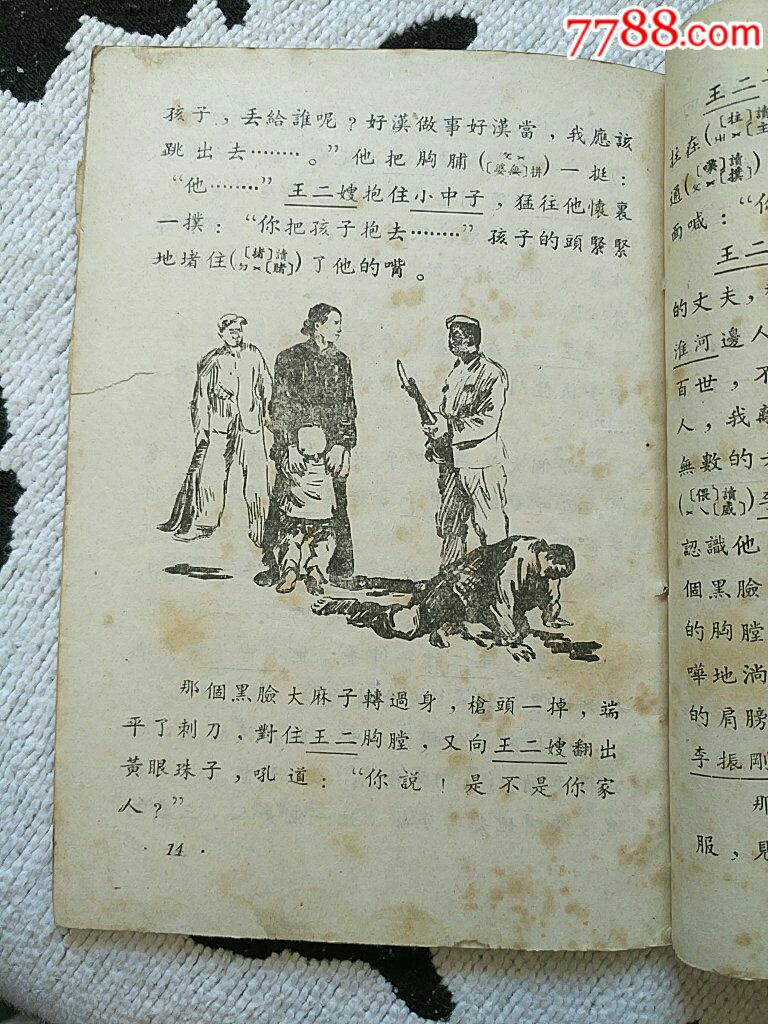 7788.com
孩子，丢給誰呢？好漢做事好漢當，我應該
跳出去………。”他把胸脯(ㄆㄨ[婆無]拼)一挺：
“他………”王二嫂抱住小中子，猛往他懷裏
一撲：“你把孩子抱去………”孩子的頭緊緊
地堵住([堵]讀ㄉㄨ[賭])了他的嘴。
那個黑臉大麻子轉過身，槍頭一掉，端
平了刺刀，對住王二胸膛，又向王二嫂翻出
黃眼珠子，吼道：“你說！是不是你家
人？”
· 14 ·
王二
拄在([拄]讀ㄓㄨ[主]
通([噗]讀ㄆㄨ[撲])
面喊：“你
王二
的丈夫，
淮河邊人
百世，不
人，我
無數的
([偎]讀ㄨㄟ[威])李
認識他
個黑臉
的胸膛
嘩地淌
的肩膀
李振剛
那
服，見